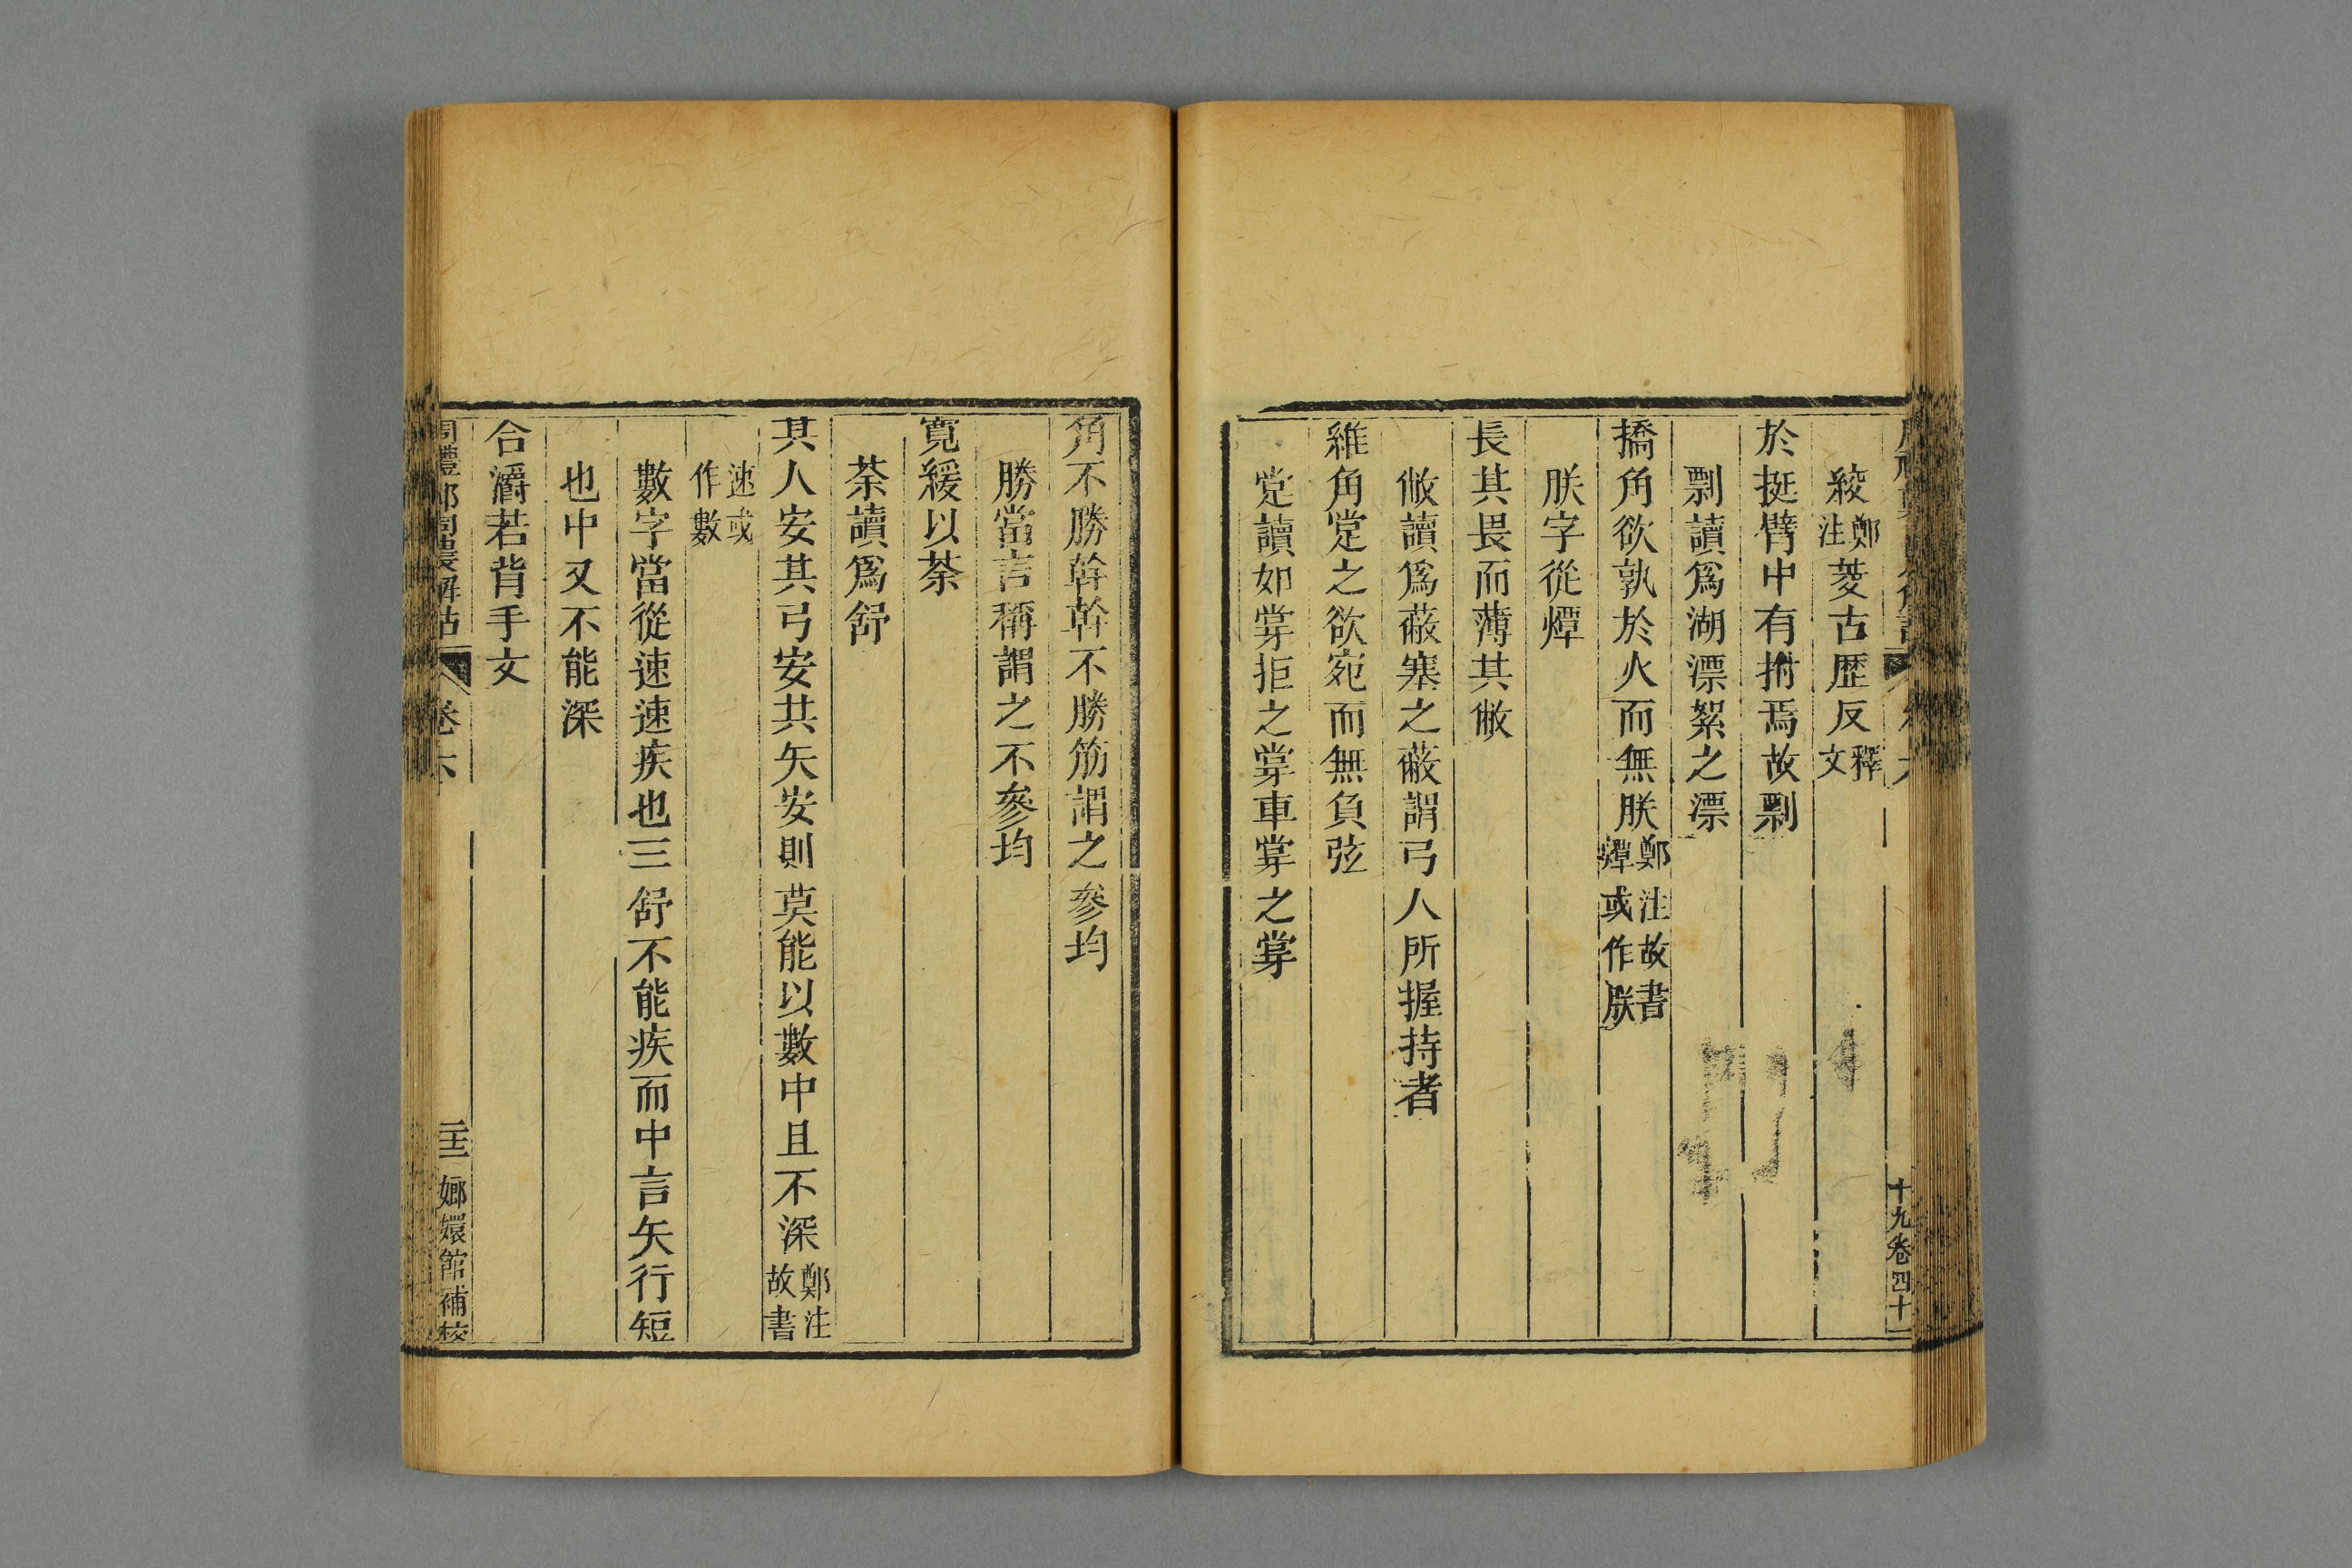 綾鄭注菱古歷反釋文
於挺臂中有拊焉故剽
剽讀爲湖漂絮之漂
撟角欲孰於火而無朕鄭注故書燂或作朕
朕字從燂
長其畏而薄其敝
敝讀爲蔽塞之蔽謂弓人所握持者
維角䟫之欲宛而無負弦
䟫讀如牚拒之牚車牚之牚
十九卷四十
角不勝幹幹不勝筋謂之參均
勝當言稱謂之不參均
寬緩以荼
荼讀爲舒
其人安其弓安其矢安則莫能以數中且不深鄭注故書
速或作數
數字當從速速疾也三舒不能疾而中言矢行短
也中又不能深
合灂若背手文
卷六
嫏嬛館補校